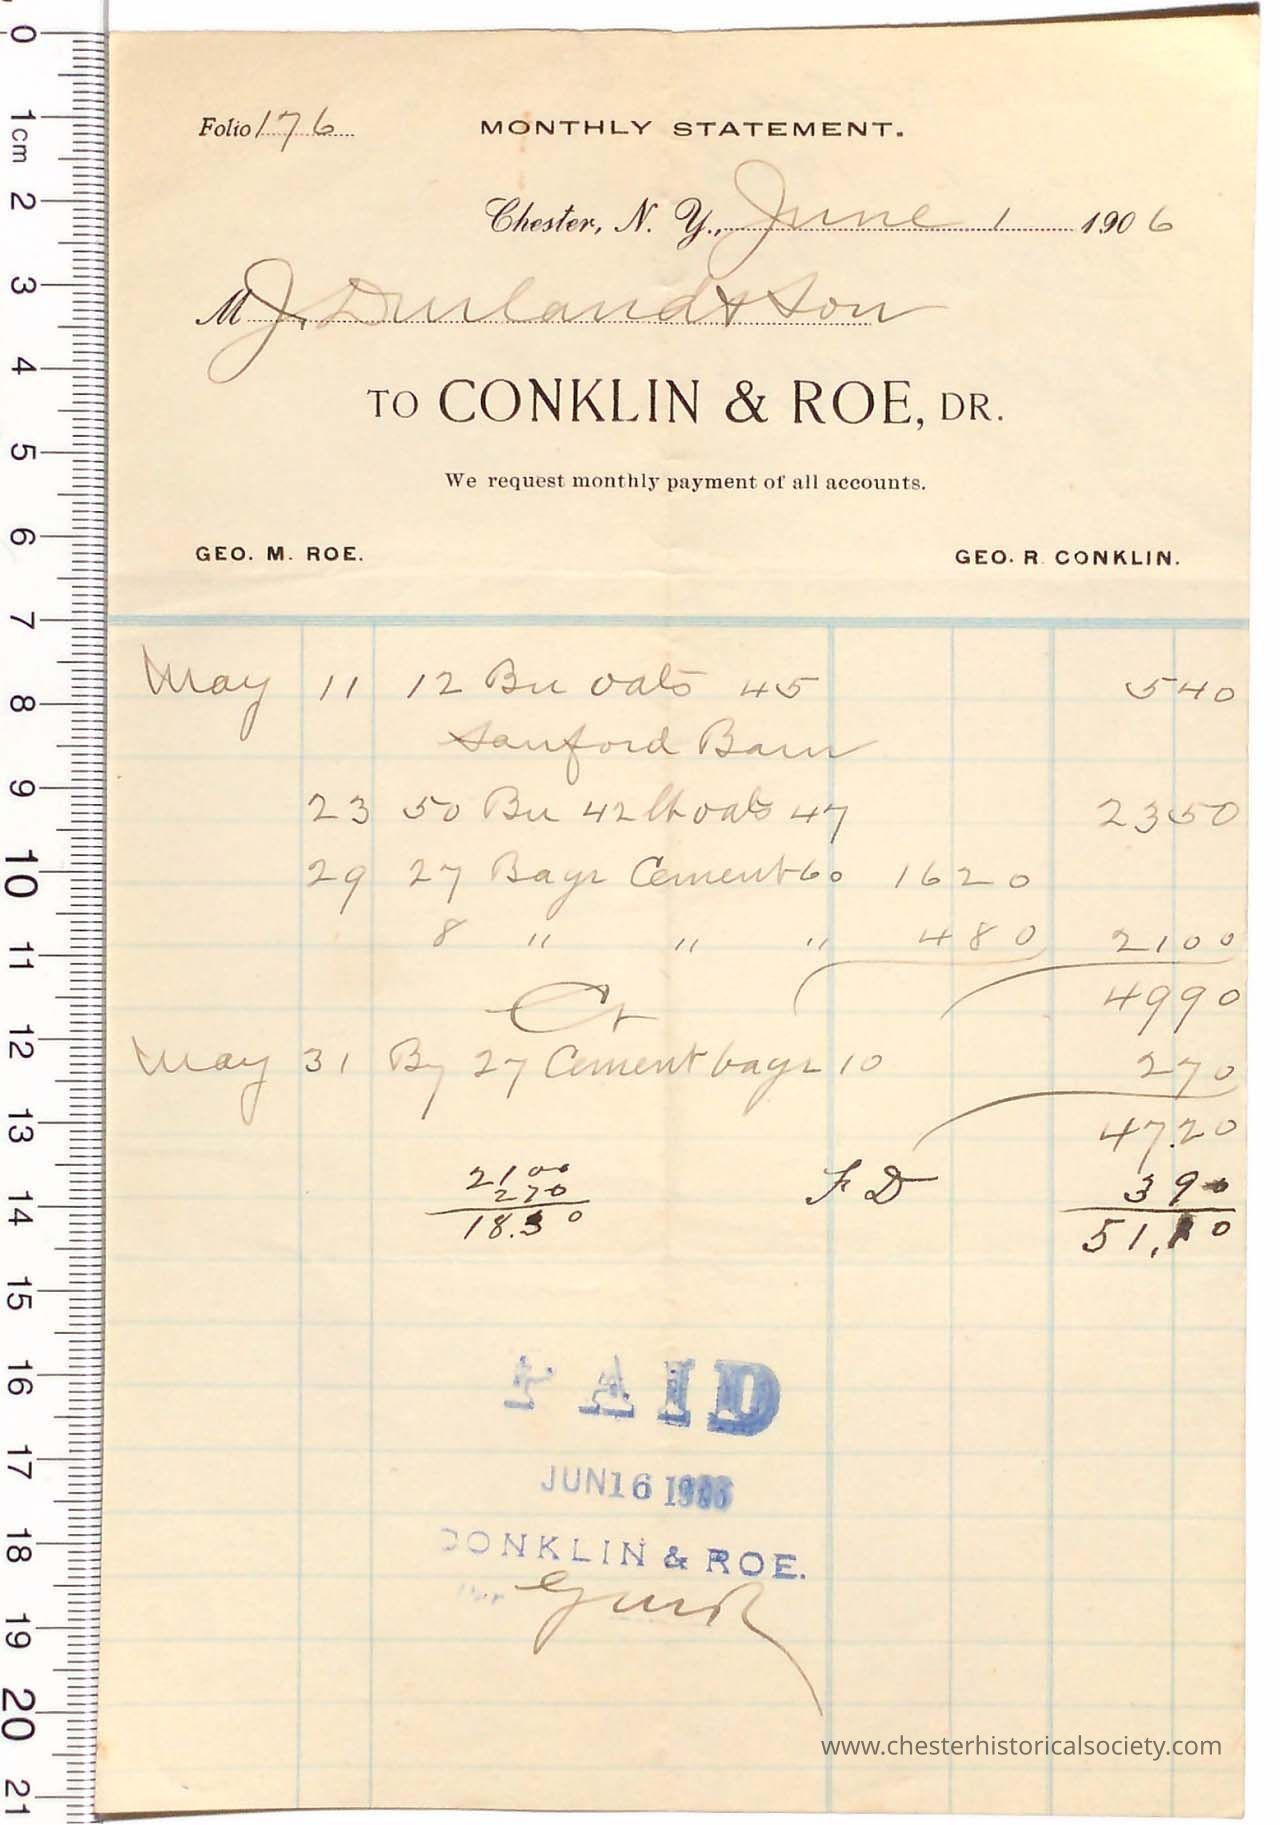 0
1cm
2
3
4
5
6
7
8
9
10
11
12
13
14
15
16
17
18
19
20
21
Folio 176
MONTHLY STATEMENT.
Chester, N. Y., June 1 1906
M J. Durland & Son
TO CONKLIN & ROE, DR.
We request monthly payment of all accounts.
GEO. M. ROE. GEO. R. CONKLIN.
May 11 12 Bu oats 45 5 40
Sanford Barn
23 50 Bu 42 lb oats 47 23 50
29 27 Bags Cement 60 16 20
8 " " " 4 80 21 00
49 90
Cr
May 31 By 27 Cement bags 10 2 70
47.20
21 00 F D 3 90
2 70
18.30 51,10
PAID
JUN 16 1906
CONKLIN & ROE.
Per GMR
www.chesterhistoricalsociety.com